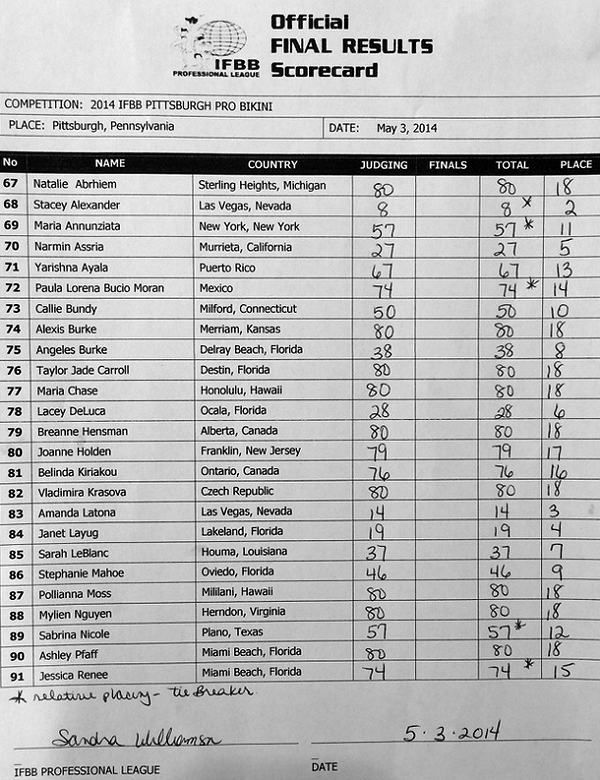 Official
FINAL RESULTS
IFBB
PROFESSIONAL LEAGUE
Scorecard
COMPETITION: 2014 IFBB PITTSBURGH PRO BIKINI
PLACE: Pittsburgh, Pennsylvania DATE: May 3, 2014
No NAME COUNTRY JUDGING FINALS TOTAL PLACE
67 Natalie Abrhiem Sterling Heights, Michigan 80 80 18
68 Stacey Alexander Las Vegas, Nevada 8 8 * 2
69 Maria Annunziata New York, New York 57 57 * 11
70 Narmin Assria Murrieta, California 27 27 5
71 Yarishna Ayala Puerto Rico 67 67 13
72 Paula Lorena Bucio Moran Mexico 74 74 * 14
73 Callie Bundy Milford, Connecticut 50 50 10
74 Alexis Burke Merriam, Kansas 80 80 18
75 Angeles Burke Delray Beach, Florida 38 38 8
76 Taylor Jade Carroll Destin, Florida 80 80 18
77 Maria Chase Honolulu, Hawaii 80 80 18
78 Lacey DeLuca Ocala, Florida 28 28 6
79 Breanne Hensman Alberta, Canada 80 80 18
80 Joanne Holden Franklin, New Jersey 79 79 17
81 Belinda Kiriakou Ontario, Canada 76 76 16
82 Vladimira Krasova Czech Republic 80 80 18
83 Amanda Latona Las Vegas, Nevada 14 14 3
84 Janet Layug Lakeland, Florida 19 19 4
85 Sarah LeBlanc Houma, Louisiana 37 37 7
86 Stephanie Mahoe Oviedo, Florida 46 46 9
87 Pollianna Moss Mililani, Hawaii 80 80 18
88 Mylien Nguyen Herndon, Virginia 80 80 18
89 Sabrina Nicole Plano, Texas 57 57 * 12
90 Ashley Pfaff Miami Beach, Florida 80 80 18
91 Jessica Renee Miami Beach, Florida 74 74 * 15
* relative placing - tie Breaker
Sandra Williamson 5·3·2014
IFBB PROFESSIONAL LEAGUE DATE